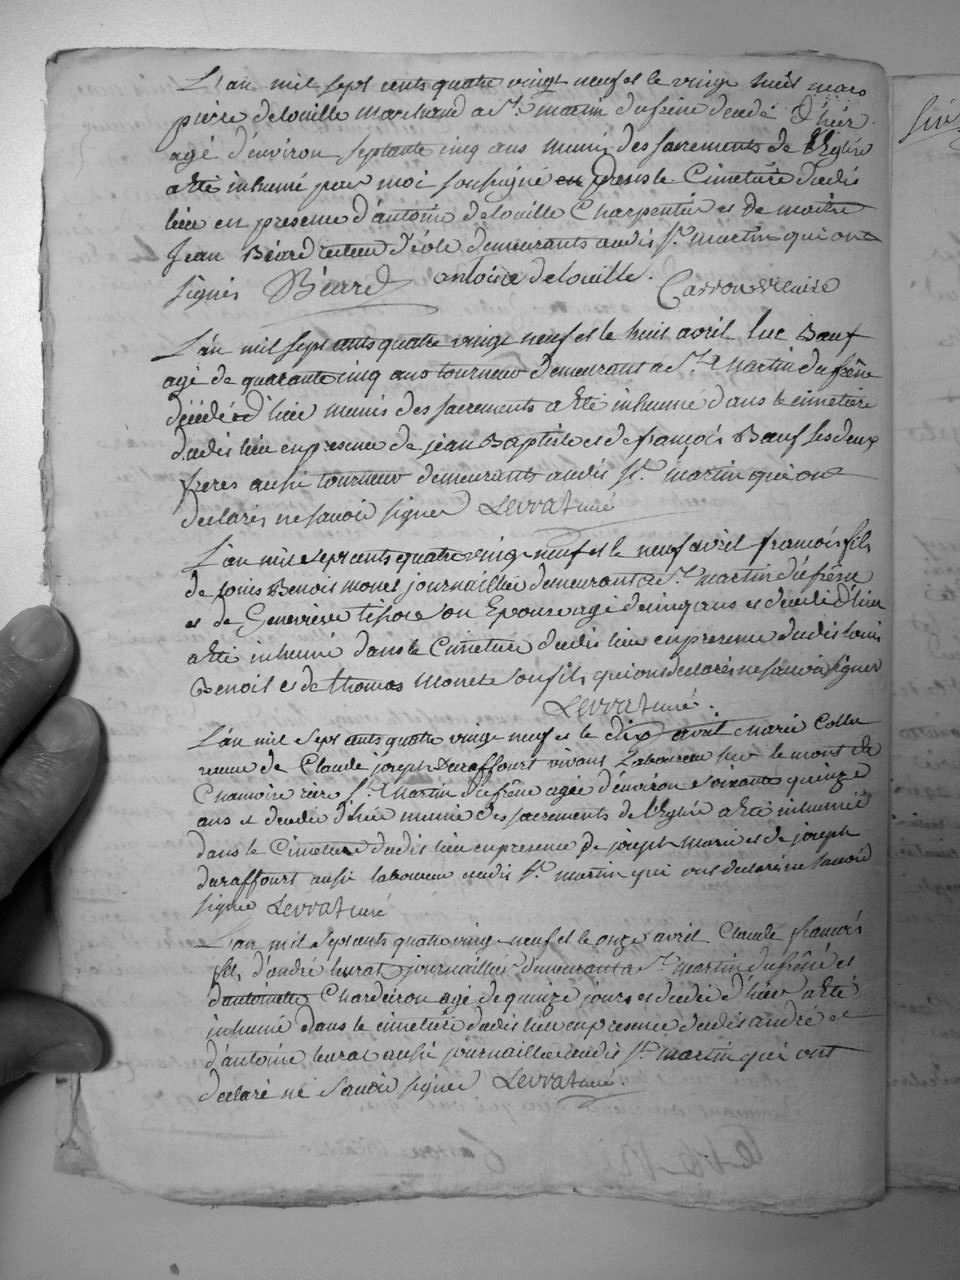 L'an mil sept cents quatre vingt neuf et le vingt huit mars
pierre delouille marchand a St. martin du frêne decedé d'hier
agé d'environ septante cinq ans muni des sacrements de l'Eglise
a été inhumé par moi soussigné dans le Cimetiere dudit
lieu en presence d'antoine delouille Charpentier et de maitre
Jean Béard recteur d'école demeurants audit St. martin qui ont
signés Béard antoine delouille. Carron vicaire
L'an mil sept cents quatre vingt neuf et le huit avril luc Bœuf
agé de quarante cinq ans tourneur demeurant a St. Martin du frêne
décédé d'hier munis des sacrements a été inhumé dans le cimetière
dudit lieu en presence de jean Baptiste et de françois Bœuf ses deux
freres aussi tourneur demeurants audit St. martin qui ont
declarés ne savoir signer Levrat curé
L'an mil sept cents quatre vingt neuf et le neuf avril françois fils
de louis Benoit monet journaillier demeurant a St. martin du frêne
et de Genevieve son Epouse agé de cinq ans et decedé d'hier
a été inhumé dans le Cimetiere dudit lieu en presence dudit louis
Benoit et de thomas Monet son fils qui ont declarés ne savoir signer
Levrat curé.
L'an mil sept cents quatre vingt neuf et le dix avril Marie Collet
veuve de Claude joseph Duraffourt vivant Laboureur sur le mont de
Chamoise rière St. Martin du frêne agée d'environ soixante quinze
ans et decedée d'hier munie des sacrements de l'Eglise a été inhumée
dans le Cimetiere dudit lieu en presence de joseph Marie et de joseph
duraffourt aussi laboureur audit St. martin qui ont declaré ne savoir
signer Levrat curé
L'an mil sept cents quatre vingt neuf et le onze avril Claude françois
fils d'andré burat journaillier demeurant a St. martin du frêne et
d'antoinette Chardeiron agé de quinze jours et decedé d'hier a été
inhumé dans le cimetiere dudit lieu en presence dudit andré et
d'antoine burat aussi journaillier audit St. martin qui ont
declaré ne savoir signer Levrat curé.